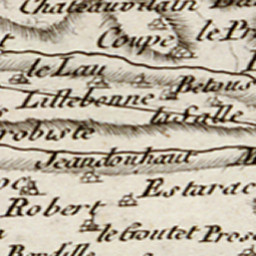 Chateauvilain
Coupé
le Pr
le Lau
Betous
Lillebonne
la Salle
robiste
Jeandouhaut
Estarac
Robert
le Goutet
Pross
Bordille